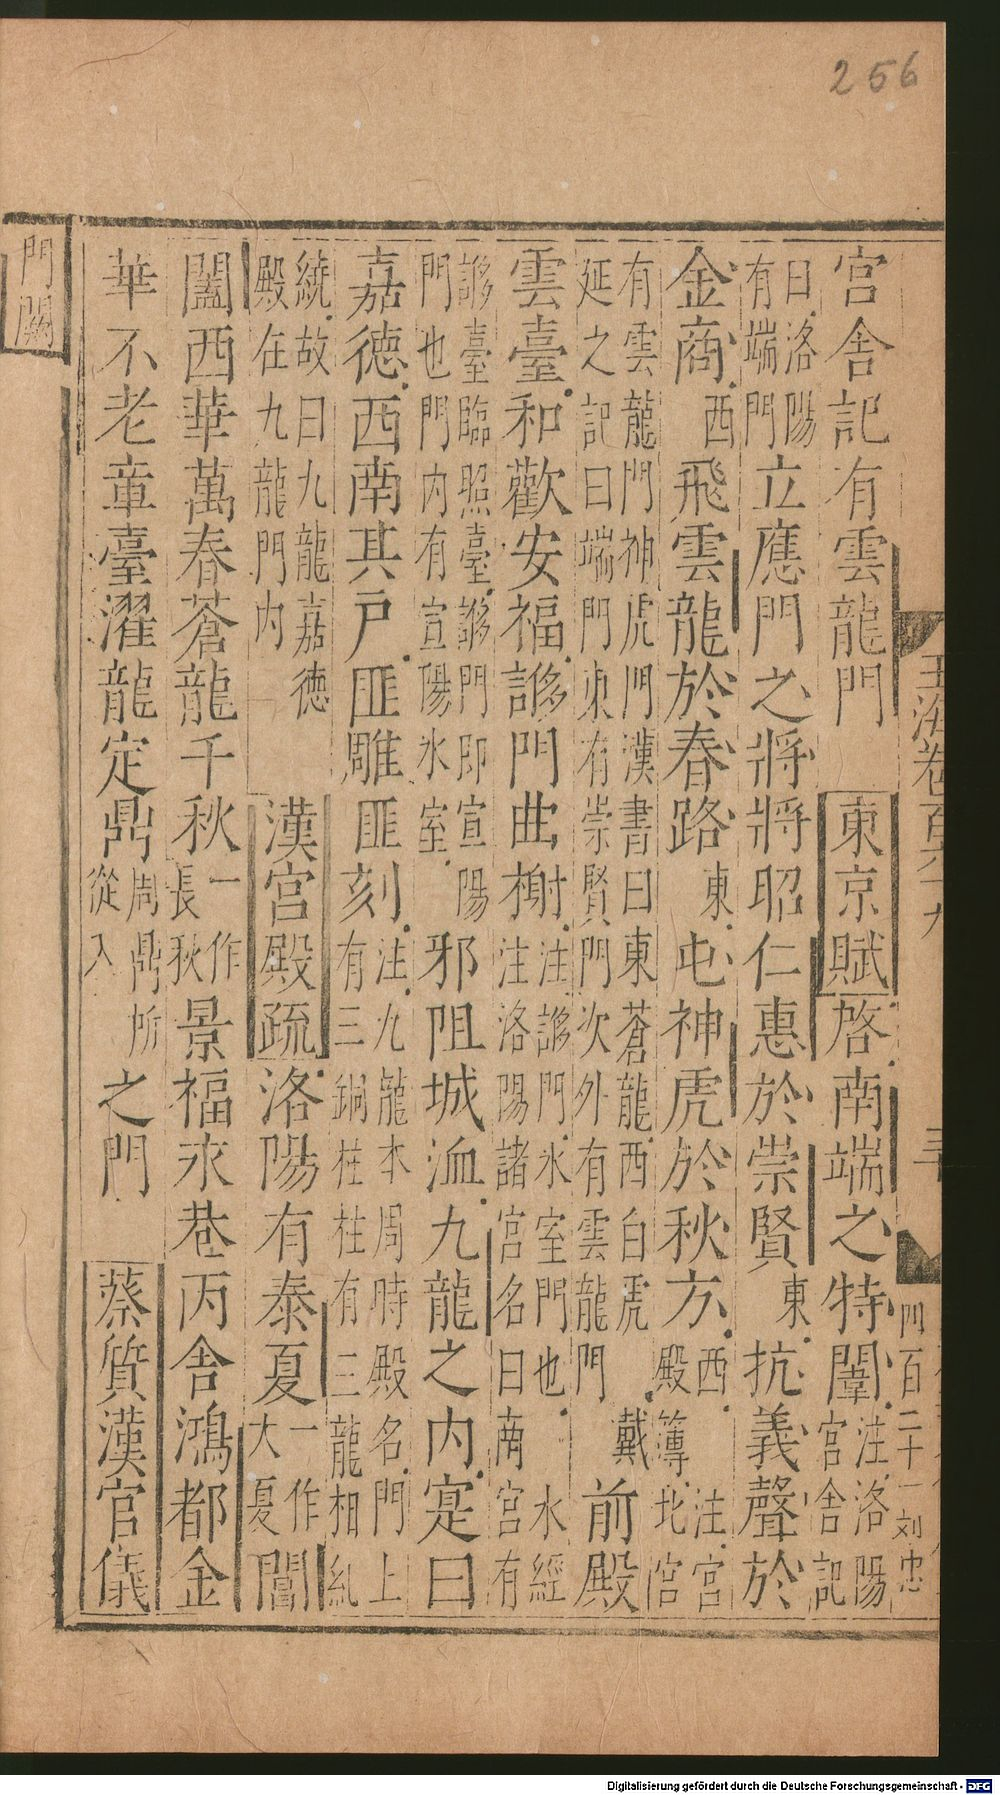 256
玉海卷百六十九
三十
四百二十一 刘忠
宮舍記有雲龍門 東京賦啓南端之特闈注洛陽宮舍記
曰洛陽有端門立應門之將將昭仁惠於崇賢東抗義聲於
金商西飛雲龍於春路東屯神虎於秋方西注宮殿簿北宮
有雲龍門神虎門漢書曰東蒼龍西白虎戴延之記曰端門東有崇賢門次外有雲龍門前殿
雲臺和歡安福謻門曲榭注謻門冰室門也水經注洛陽諸宮名曰南宮有
謻臺臨照臺謻門即宣陽門也門內有宣陽冰室邪阻城洫九龍之內寔曰
嘉德西南其戶匪雕匪刻注九龍本周時殿名門上有三銅柱柱有三龍相糺
繞故曰九龍嘉德殿在九龍門內 漢宮殿疏洛陽有泰夏一作大夏閶
闔西華萬春蒼龍千秋一作長秋景福永巷丙舍鴻都金
華不老章臺濯龍定鼎周鼎所從入之門 蔡質漢官儀
門闕
Digitalisierung gefördert durch die Deutsche Forschungsgemeinschaft - DFG